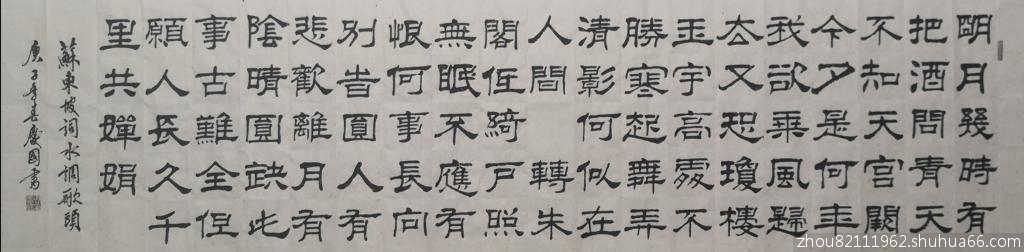 明月幾時有
把酒問青天
不知天宮闕
今夕是何年
我欲乘風歸
去又恐瓊樓
玉宇高處不
勝寒起舞弄
清影何似在
人間 轉朱
閣低綺戶照
無眠不應有
恨何事長向
別時圓人有
悲歡離月有
陰晴圓缺此
事古難全但
願人長久千
里共嬋娟
蘇東坡詞水調歌頭
庚子慶國書
zhou82111962.shuhua66.com